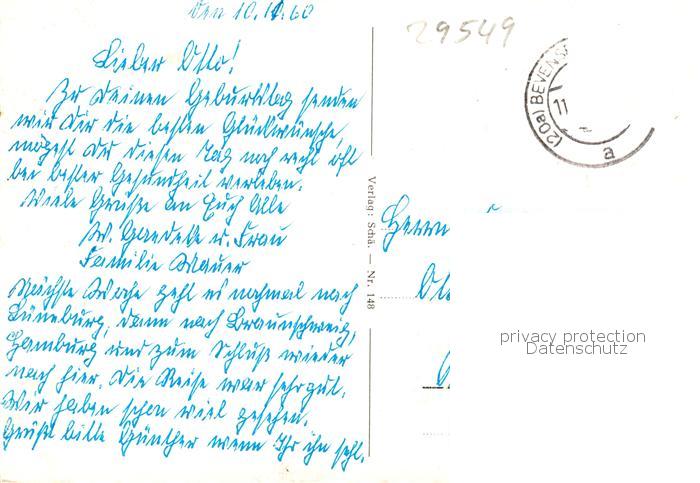 den 10.11.60
29549
(20a) BEVENS
11
a
Lieber Otto!
Zu Deinen Geburtstag senden
wir Dir die besten Glückwünsche,
mögest Du diesen Tag noch recht oft
bei bester Gesundheit verleben.
Viele Grüße an Euch Alle
W. Gaedeke u. Frau
Familie Mauer
Nächste Woche geht es nochmal nach
Lüneburg, dann nach Braunschweig,
Hamburg und zum Schluß wieder
nach hier. Die Reise war sehr gut.
Wir haben schon viel gesehen.
Grüßt bitte Günther wenn Ihr ihn seht.
Verlag: Schä. — Nr. 148
Herrn
privacy protection
Datenschutz